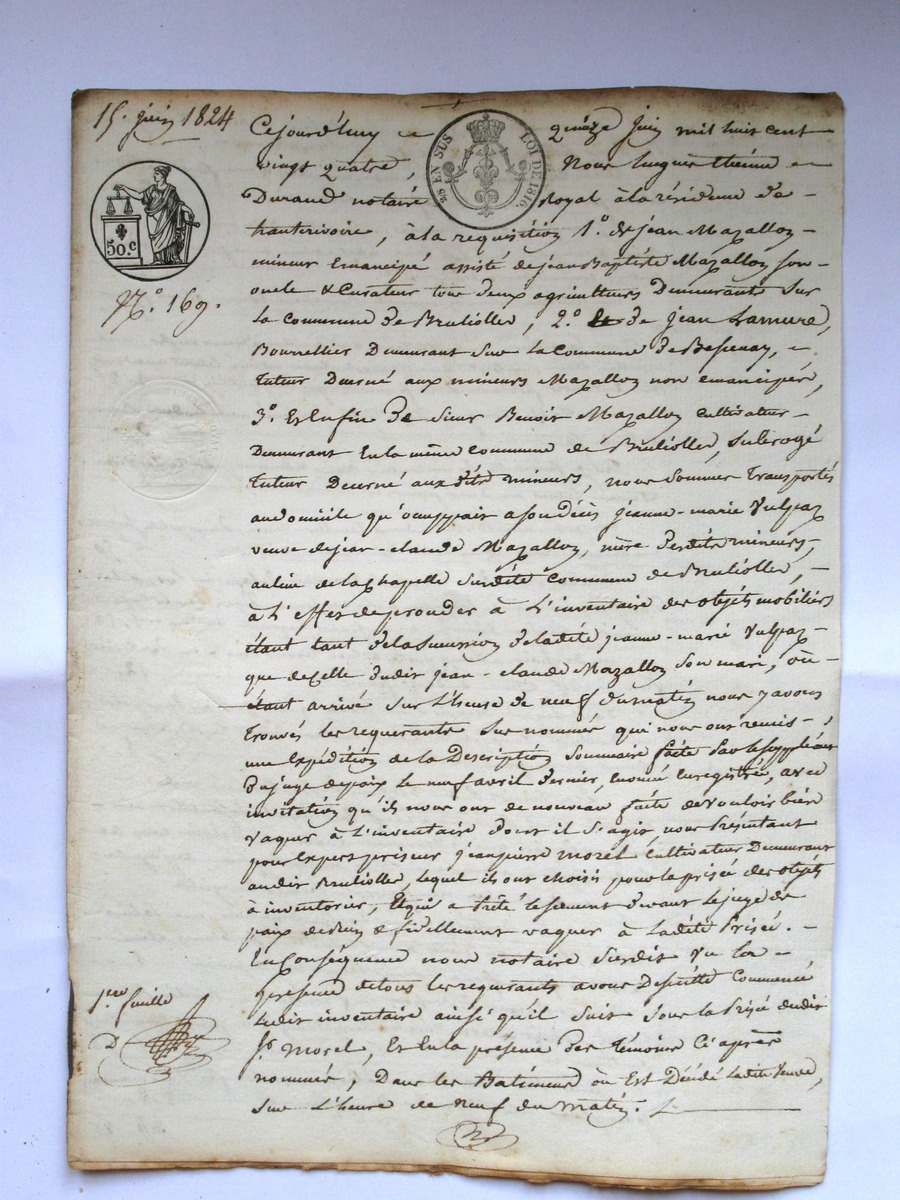 15. juin 1824
Cejourd'huy quinze juin mil huit cent
vingt quatre, Nous hugues Etienne
Durand notaire Royal à la résidence d'
hauterivoire, à la requisition 1.° de jean Mazalloz
mineur Emancipé assisté de jean Baptiste Mazalloz son
oncle & Curateur tous deux agriculteurs Demeurants Sur
la Commune de Brulioller, 2.° de jean Lamure,
Bourrellier Demeurant Sur la Commune de Bessenay,
tuteur Décerné aux mineurs Mazalloz non emancipés,
3.° Et Enfin De Sieur Benoit Mazalloz Cultivateur
Demeurant En la même Commune de Brulioller, Subrogé
tuteur Décerné aux dits mineurs, nous Sommes transportés
au domicile qu'occuppait a son décès jeanne-marie Vulpaz
veuve de jean-claude Mazalloz, mère desdits mineurs,
au lieu de la chapelle Susdite Commune de Brulioller,
à l'effet de procéder à l'inventaire des objets mobiliers
étant tant de la succession de ladite jeanne-marie Vulpaz
que de celle dudit jean-claude Mazalloz Son mari, où
étant arrivé sur l'heure de neuf du matin nous y avons
trouvés les requerants Sus nommés qui nous ont remis
une Expédition de la Description Sommaire faite par le Suppléant
Du juge de paix le neuf avril Dernier, Enregistrée, avec
invitation qu'ils nous ont de nouveau faite de vouloir bien
vaquer à l'inventaire dont il S'agit, nous Présentant
pour Expert priseur jean pierre Morel Cultivateur Demeurant
audit Brulioller, lequel ils ont choisis pour la prisée des objets
à inventorier, Et qui a Prêté le serment devant le juge de
paix de bien & fidellement vaquer à Ladite Prisée.
En Conséquence nous notaire Susdit
présence de tous les requérants avons De suitte Commencé
Ledit inventaire ainsi qu'il Suit Sous la Prisée dudit
S.r Morel, Et En la présence des témoins Ci après
nommés, Dans les Batiments où Est Décédé Ladite Veuve,
Sur L'heure de Neuf du matin.
50.C
N.° 169.
25 EN SUS
LOI DE 1816.
1.ere feuille
D